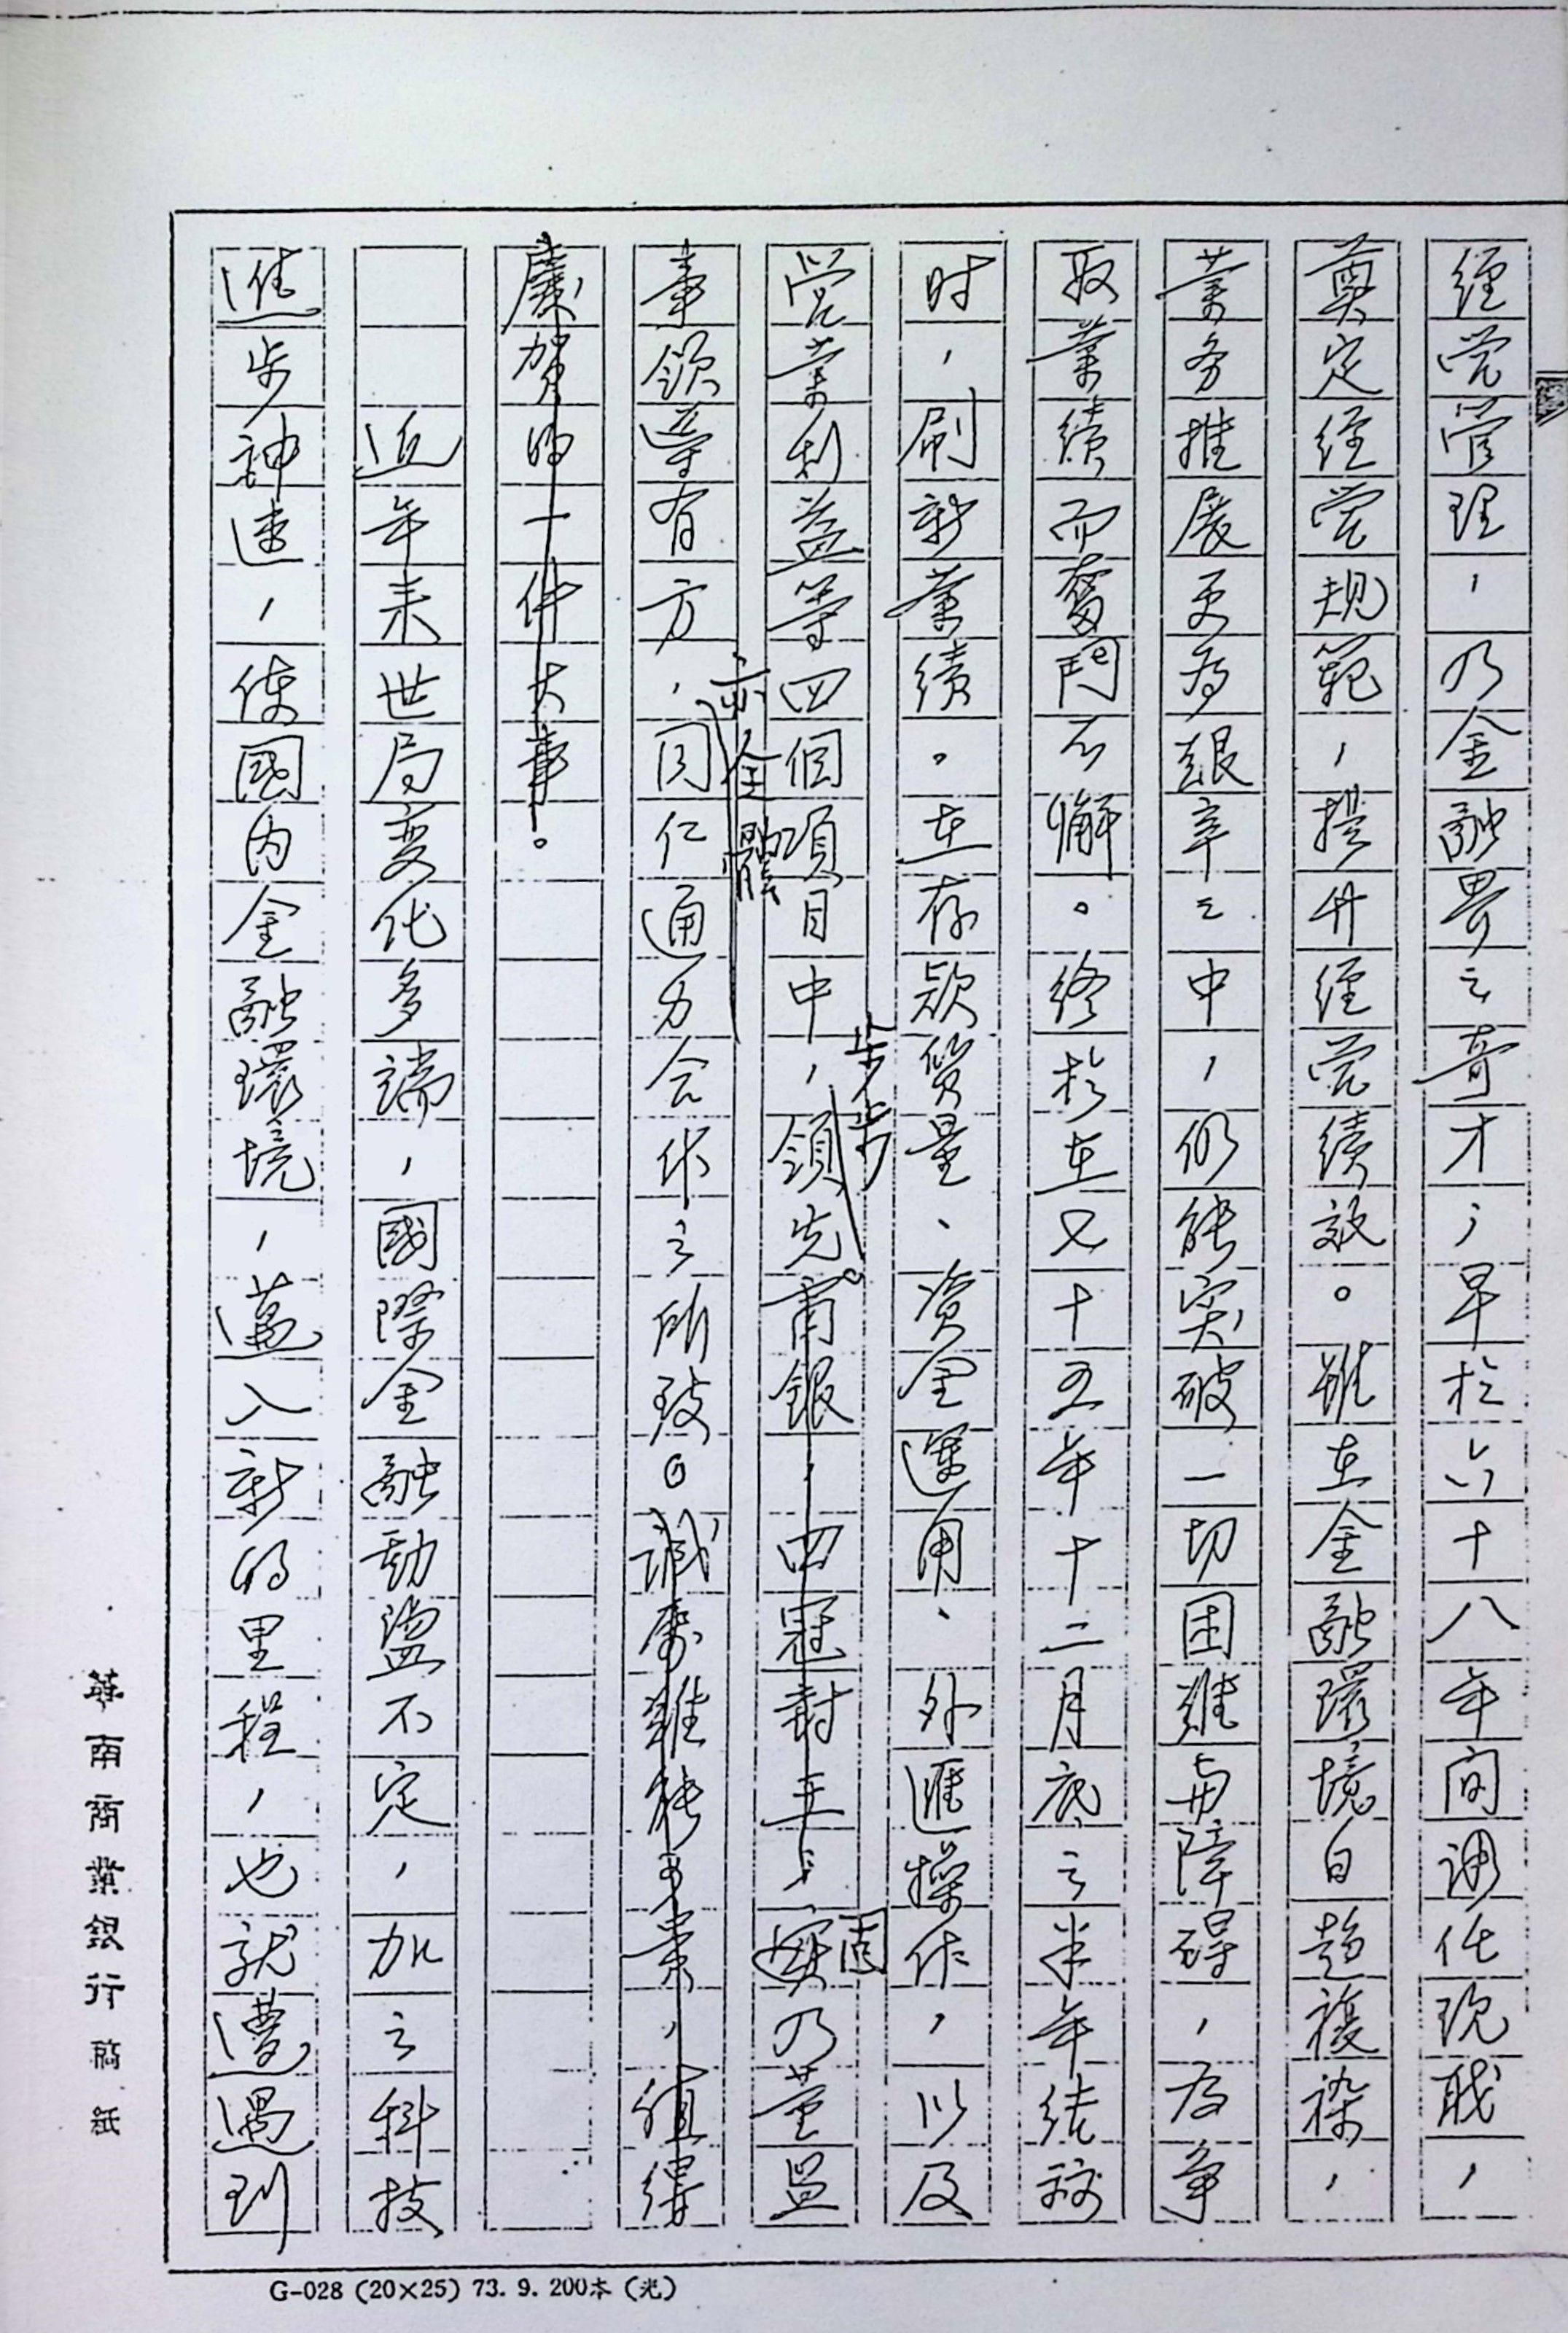 經營管理，乃金融界之奇才；早於六十八年間調任現職，
奠定經營規範，提升經營績效。雖在金融環境日趨複雜，
業務推展更為艱辛之中，仍能突破一切困難與障礙，為爭
取業績而奮鬥不懈。終於在七十五年十二月底之半年結算
時，刷新業績。在存款質量、資金運用、外匯操作，以及
步步
營業利益等四個項目中，領先。商銀，四冠封王，固乃董監
亦全體
事領導有方，同仁通力合作之所致。誠屬難能可貴，值得
慶賀的一件大事。
近年來世局變化多端，國際金融動盪不定，加之科技
進步神速，使國內金融環境，邁入新的里程，也就遭遇到
華南商業銀行稿紙
G-028 (20×25) 73. 9. 200本 (光)